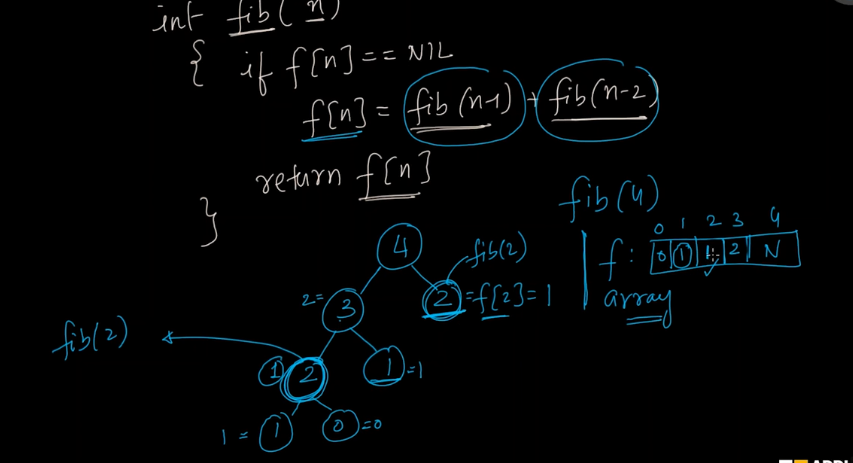 int fib(n)
{ if f[n] == NIL
f[n] = fib(n-1) + fib(n-2)
return f[n]
}
fib(4)
0 1 2 3 4
f: 0 1 1 2 N
array
4
fib(2)
2= 3
2 =f[2]=1
fib(2)
1 2
1 =1
1 = 1
0 =0